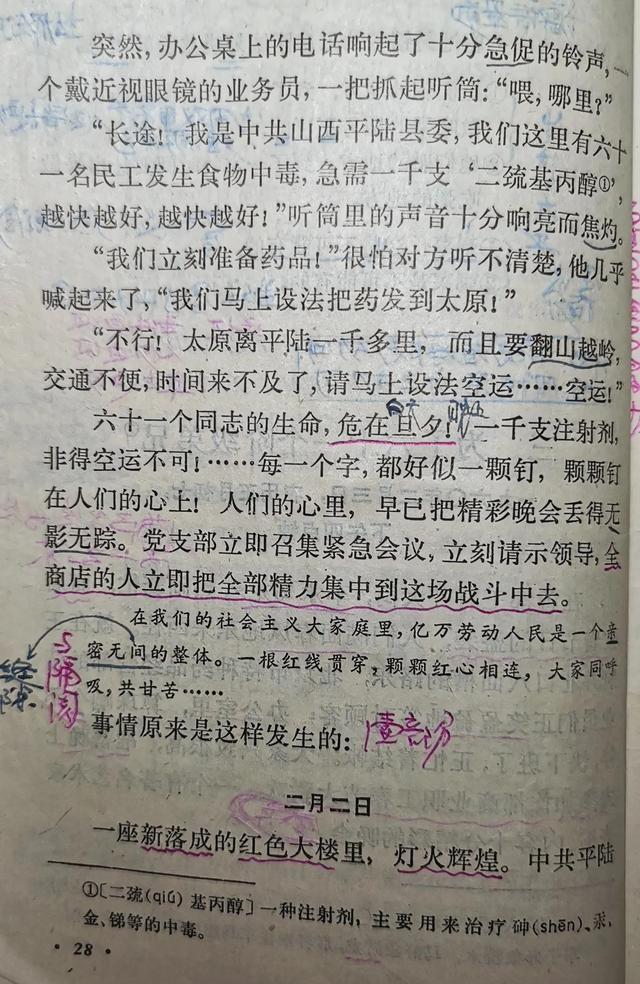 突然，办公桌上的电话响起了十分急促的铃声，一
个戴近视眼镜的业务员，一把抓起听筒：“喂，哪里？”
“长途！我是中共山西平陆县委，我们这里有六十
一名民工发生食物中毒，急需一千支‘二巯基丙醇①’，
越快越好，越快越好！”听筒里的声音十分响亮而焦灼。
“我们立刻准备药品！”很怕对方听不清楚，他几乎
喊起来了，“我们马上设法把药发到太原！”
“不行！太原离平陆一千多里，而且要翻山越岭，
交通不便，时间来不及了，请马上设法空运……空运！”
六十一个同志的生命，危在旦夕！一千支注射剂，
非得空运不可！……每一个字，都好似一颗钉，颗颗钉
在人们的心上！人们的心里，早已把精彩晚会丢得无
影无踪。党支部立即召集紧急会议，立刻请示领导，全
商店的人立即把全部精力集中到这场战斗中去。
在我们的社会主义大家庭里，亿万劳动人民是一个亲
密无间的整体。一根红线贯穿，颗颗红心相连，大家同呼
吸，共甘苦……
隔阂
事情原来是这样发生的：
二月二日
一座新落成的红色大楼里，灯火辉煌。中共平陆
①〔二巯(qiú)基丙醇〕一种注射剂，主要用来治疗砷(shēn)、汞、
金、锑等的中毒。
· 28 ·